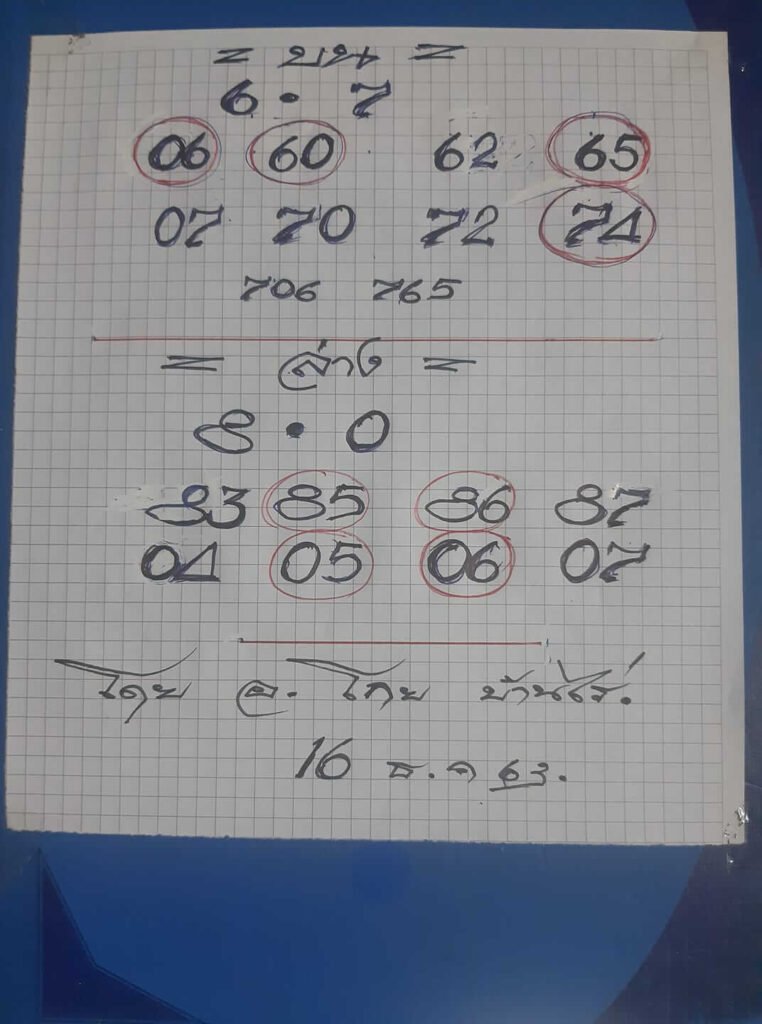 = บน =
6 . 7
06 60 62 65
07 70 72 74
706 765
= ล่าง =
8 . 0
83 85 86 87
04 05 06 07
โดย อ. โกย บ้านไร่.
16 ธ.ค 63.